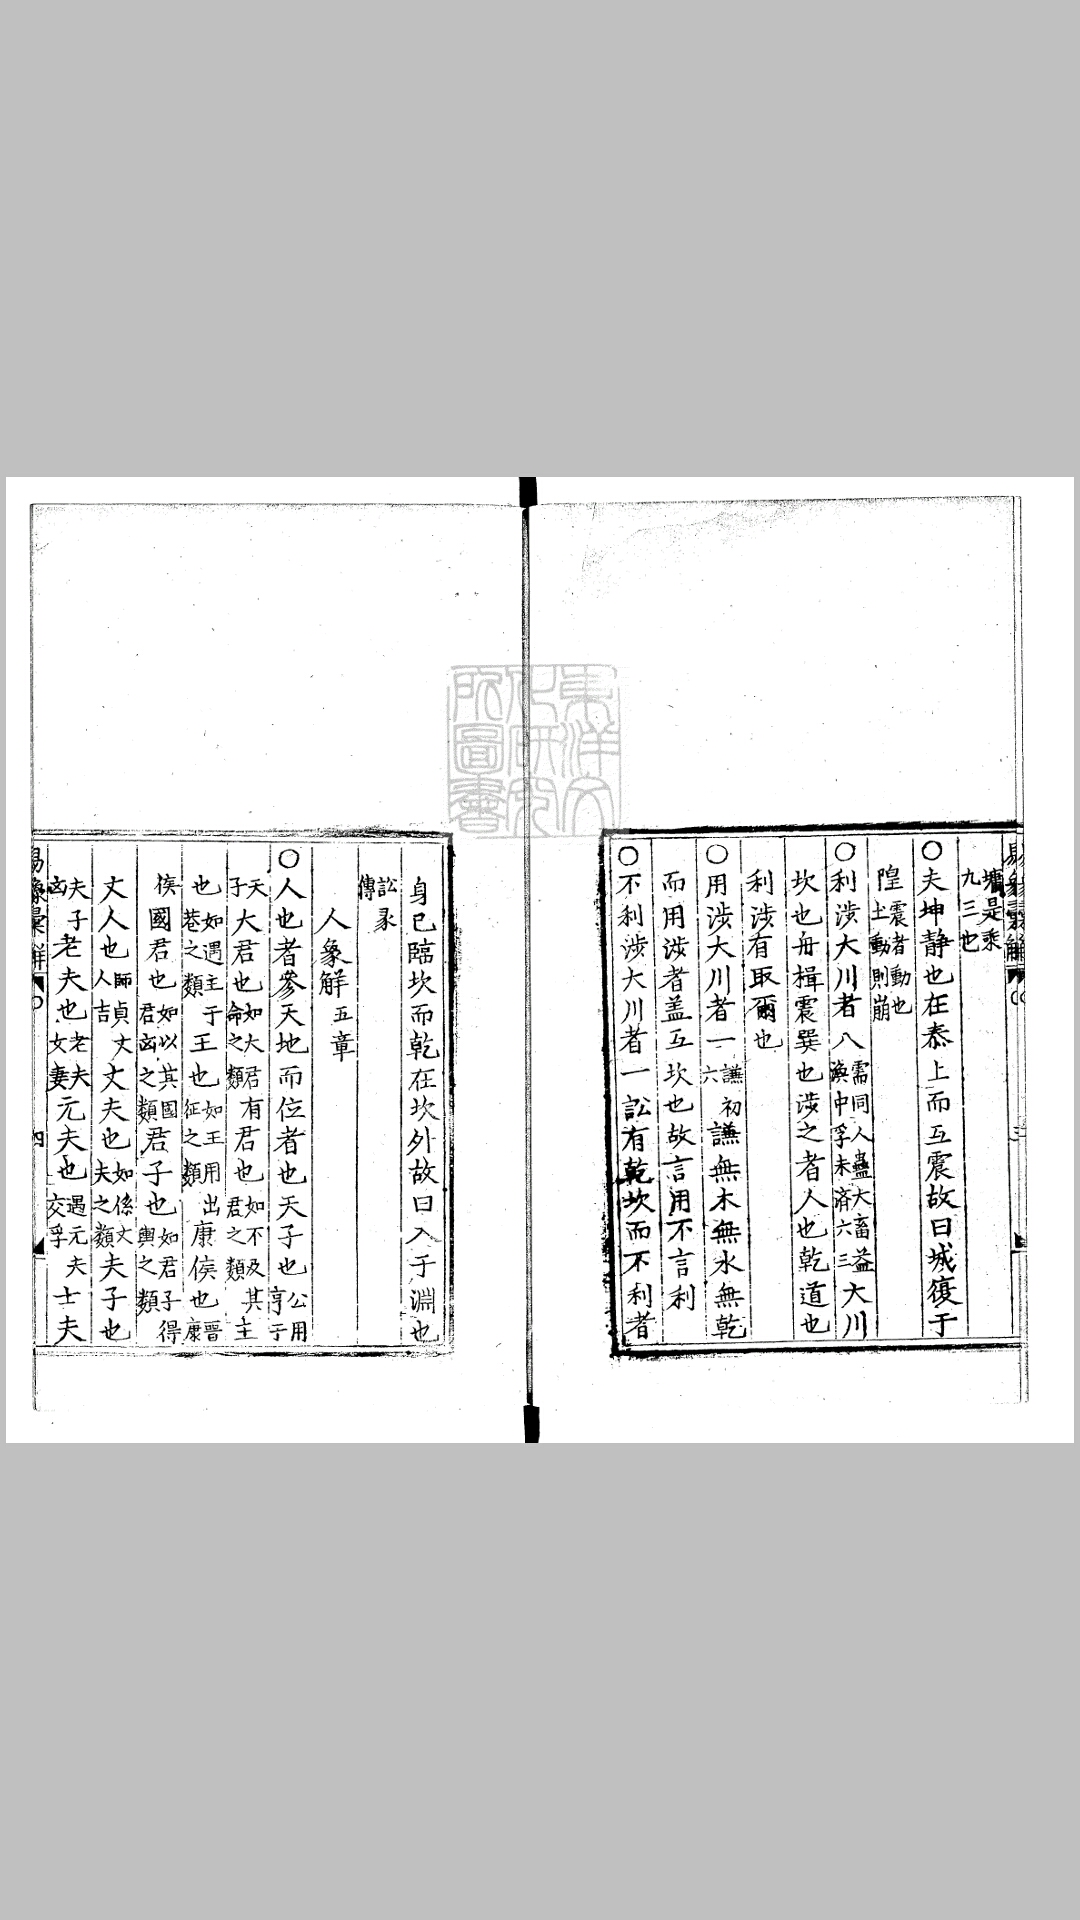 易象彙解
三
墉是乘
九三也
〇夫坤靜也在泰上而互震故曰城復于
隍震者動也
土動則崩
〇利涉大川者八需同人蠱大畜益
渙中孚未濟六三大川
坎也舟楫震巽也涉之者人也乾道也
利涉有取爾也
〇用涉大川者一謙初
六謙無木無水無乾
而用涉者盖互坎也故言用不言利
〇不利涉大川者一訟有乾坎而不利者
身已臨坎而乾在坎外故曰入于淵也
訟彖
傳
人象解五章
〇人也者參天地而位者也天子也公用
亨于
天
子大君也如大君
命之類有君也如不及其主
君之類
也如遇主于
巷之類王也如王用出
征之類康侯也晉康
侯國君也如以其國
君凶之類君子也如君子得
輿之類
丈人也師貞丈
人吉丈夫也如係丈
夫之類夫子也
夫子
凶老夫也老夫
女妻元夫也遇元夫
交孚士夫
易象彙解
四
東洋文化研究所圖書